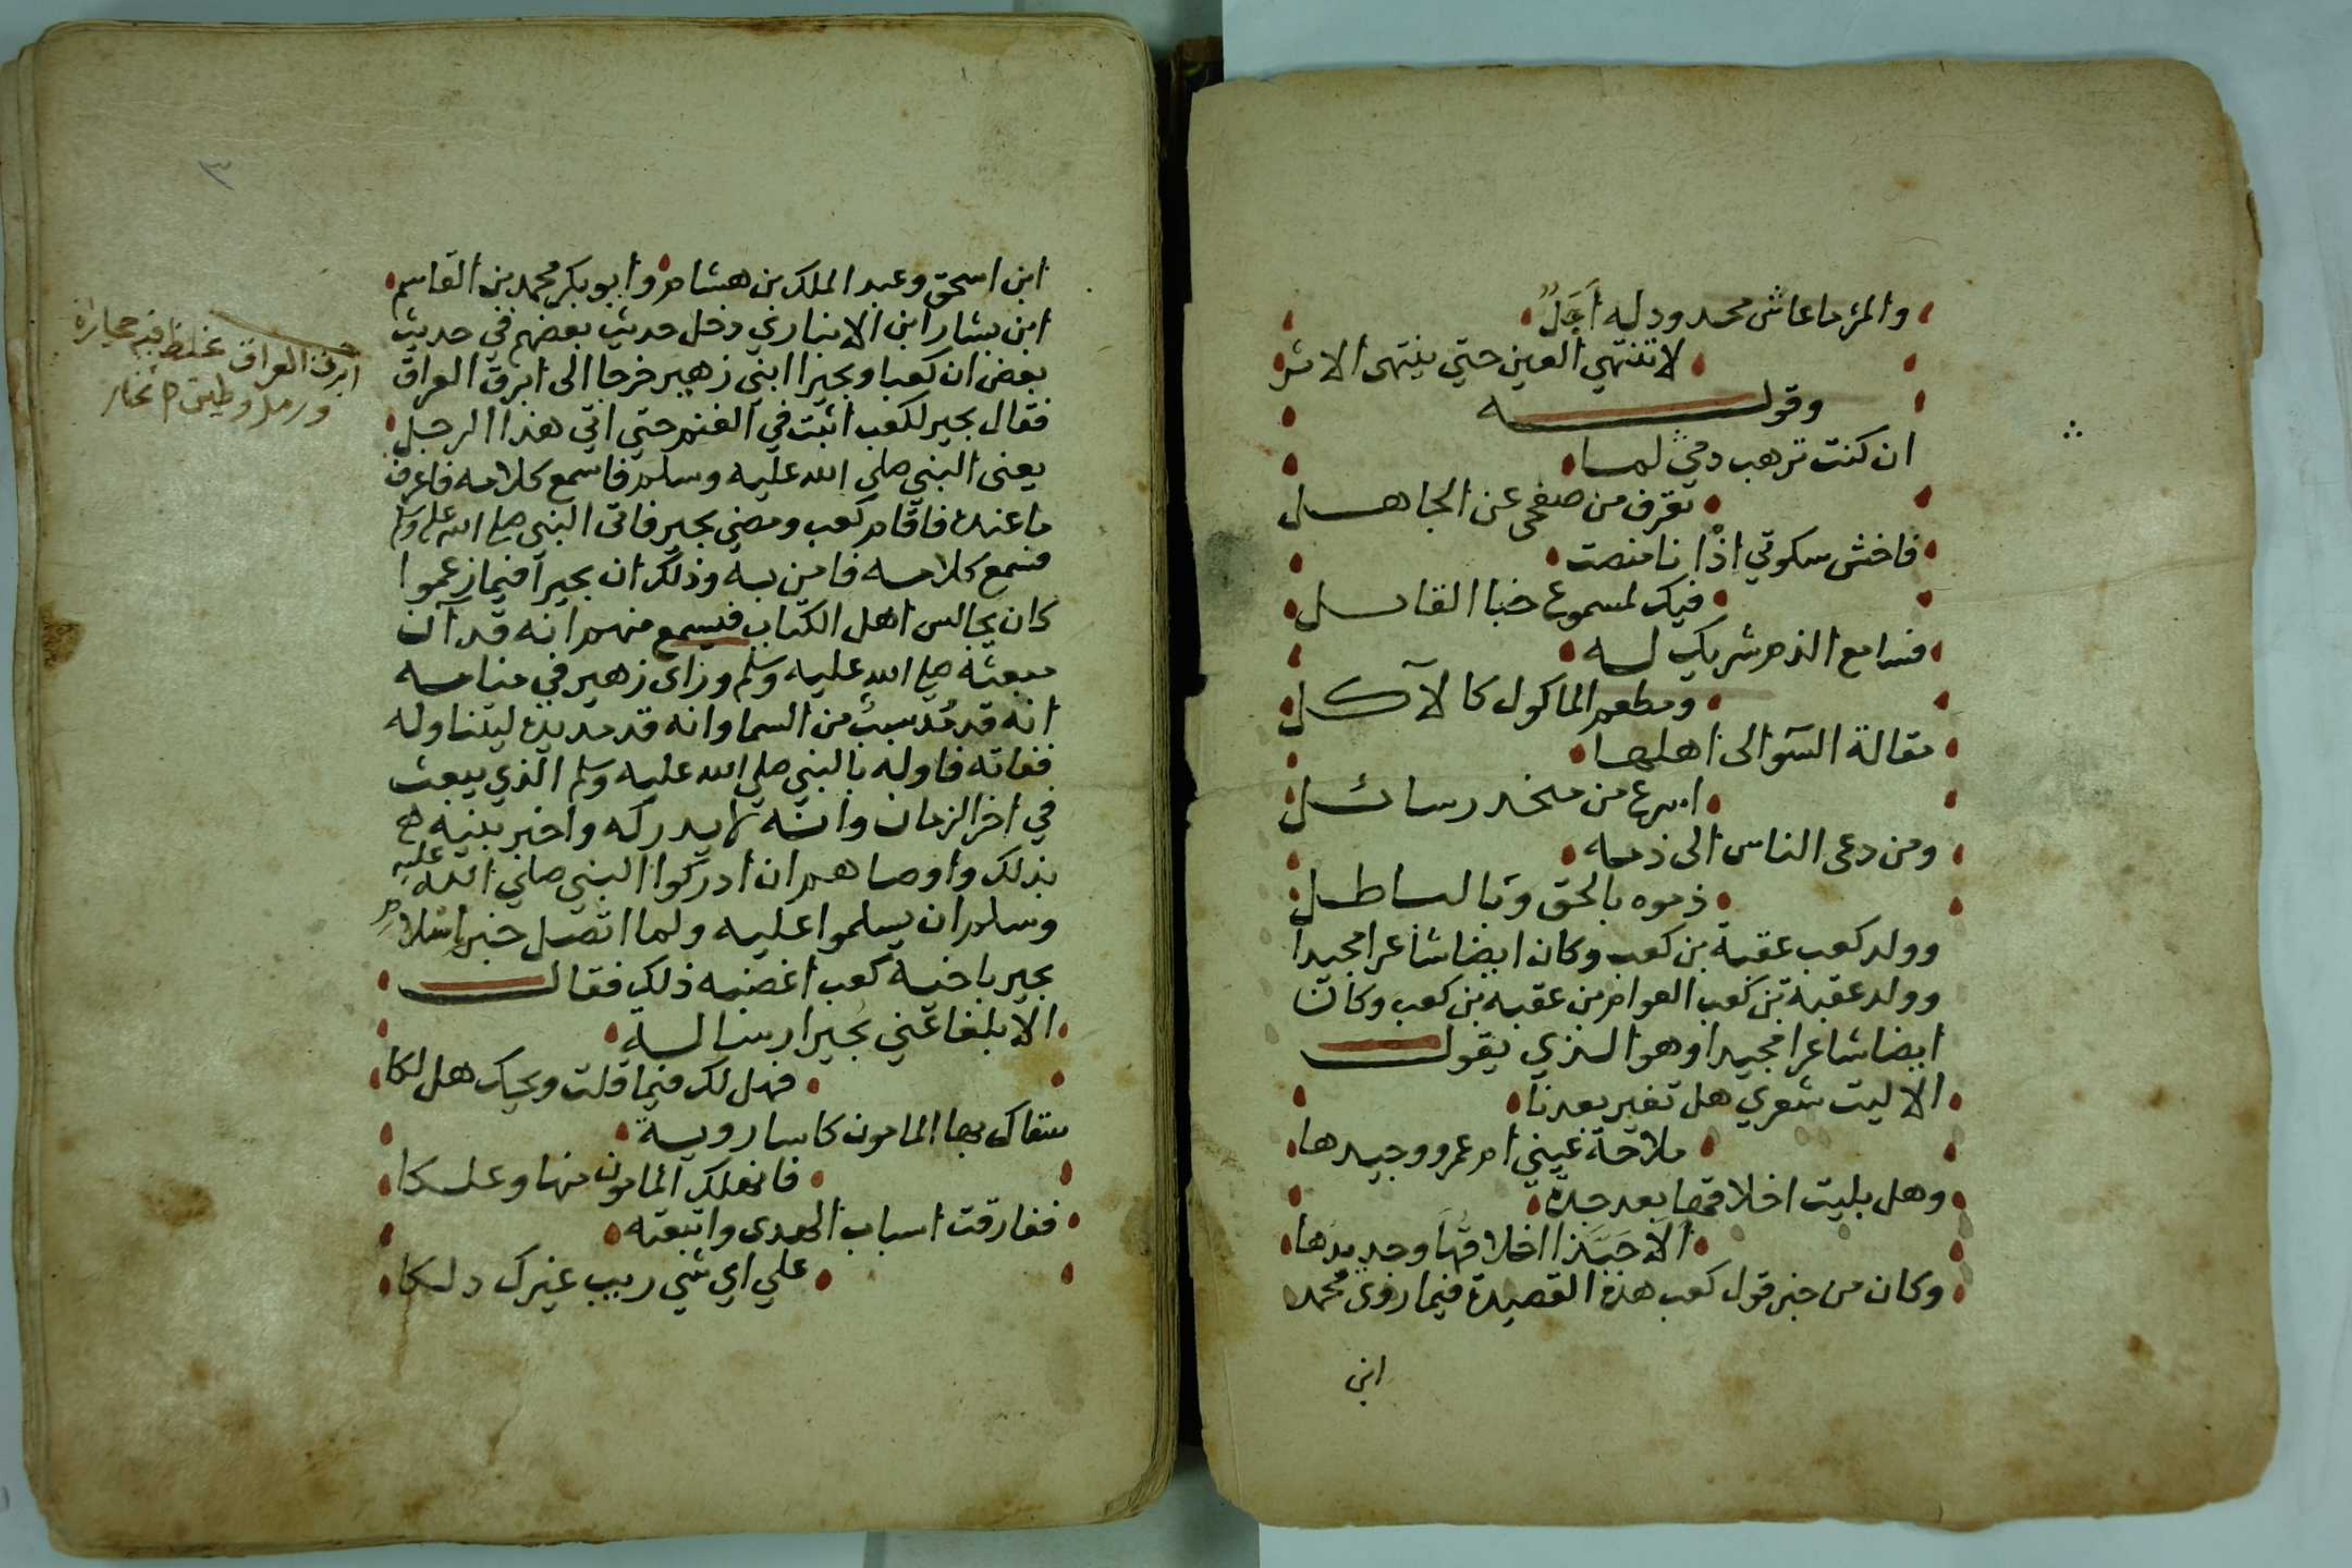 والمرء ما عاش محدود له اَجَلٌ
لا تنتهي العين حتي ينتهى الاثر
وقولـــــه
ان كنت ترهب دمي لما
تعرف من صفحي عن الجاهل
فاخش سكوتي اذْ انا منصت
فيك لمسموع خنا القائل
فسامع الذم شريك له
ومطعم الماكول كالآكل
مقالة السّوالى اهلها
اسرع من منحدر سائل
ومن دعى الناس الى ذمه
ذموه بالحق وبالباطل
وولد كعب عقبة بن كعب وكان ايضا شاعرا مجيدا
وولد عقبة بن كعب العوام بن عقبه بن كعب وكان
ايضا شاعرا مجيدا وهو الذي يقول
الا ليت شعري هل تغير بعدنا
ملاحة عيني ام عمرو وجيدها
وهل بليت اخلاقها بعد جدة
اَلَا حَبَّذا اخلاقُها وجديدها
وكان من خبر قول كعب هذه القصيدة فيما روى محمد
ابن
٣
ابن اسحق وعبد الملك بن هشام وابو بكر محمد بن القاسم
ابن بشار ابن الانباري دخل حديث بعضهم في حديث
بعض ان كعبا وبجيرا ابني زهير خرجا الى ابرق العراق
فقال بجير لكعب اثبت في الغنم حتي اتي هذا الرجل
يعنى النبي صلى الله عليه وسلم فاسمع كلامه فاعرف
ما عنده فاقام كعب ومضي بجير فاتى النبي صلى الله عليه وسلم
فسمع كلامه فامن به وذلك ان بجيرا فيما زعموا
كان يجالس اهل الكتاب فيسمع منهم انه قد آن
مبعثه صلى الله عليه وسلم وراى زهير في منامه
انه قد مُدّ سبب من السما وانه قد مد يده ليتناوله
ففاته فاوله بالنبي صلي الله عليه وسلم الذي يبعث
في اخر الزمان وانه لا يدركه واخبر بنيه
بذلك واوصاهم ان ادركوا النبي صلي الله عليه
وسلم ان يسلموا عليه ولما اتصل خبر اسلام
بجير باخيه كعب اغضبه ذلك فقال
الا بلغا عني بجيرا رسالة
فهل لك فيما قلت ويحك هل لكا
سقاك بها المامون كاسا روية
فانهلك المامون منها وعلكا
ففارقت اسباب الهدى واتبعته
علي اي شي ريب غيرك دلكا
ابرق العراق غلظ فيه حجارة
ورمل وطين